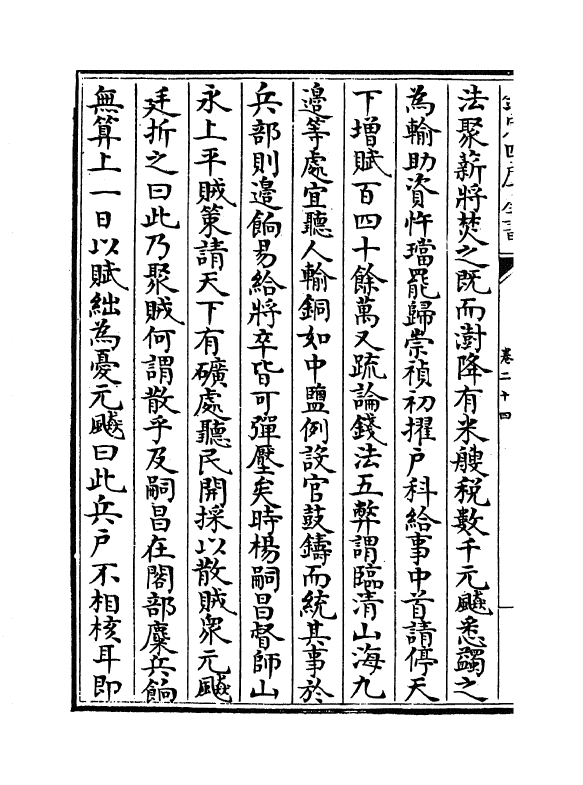 欽定四庫全書
卷二十四
法聚薪將焚之既而澍降有米艘税數千元飈悉蠲之
為輸助資忤璫罷歸崇禎初擢户科給事中首請停天
下增賦百四十餘萬又疏論錢法五弊謂臨清山海九
邉等處宜聽人輸銅如中鹽例設官鼓鑄而統其事於
兵部則邉餉易給將卒皆可彈壓矣時楊嗣昌督師山
永上平賊策請天下有礦處聽民開採以散賊衆元飈
廷折之曰此乃聚賊何謂散乎及嗣昌在閣部糜兵餉
無算上一日以賦絀為憂元飈曰此兵户不相核耳即